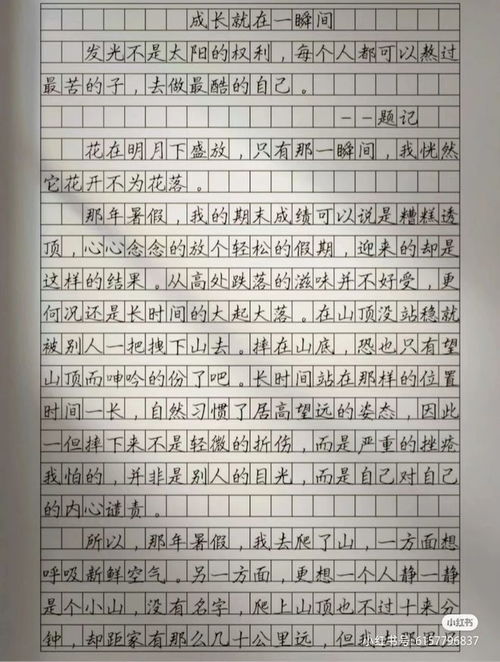 成长就在一瞬间
发光不是太阳的权利，每个人都可以熬过
最苦的子，去做最酷的自己。
——题记
花在明月下盛放，只有那一瞬间，我恍然
它花开不为花落。
那年暑假，我的期末成绩可以说是糟糕透
顶，心心念念的放个轻松的假期，迎来的却是
这样的结果。从高处跌落的滋味并不好受，更
何况还是长时间的大起大落。在山顶没站稳就
被别人一把拽下山去。摔在山底，恐也只有望
山顶而呻吟的份了吧。长时间站在那样的位置
时间一长，自然习惯了居高望远的姿态，因此
一但摔下来不是轻微的折伤，而是严重的挫疮
我怕的，并非是别人的目光，而是自己对自己
的内心谴责。
所以，那年暑假，我去爬了山，一方面想
呼吸新鲜空气。另一方面，更想一个人静一静
是个小山，没有名字，爬上山顶也不过十来分
钟，却距家有那么几十公里远，但我
小红书
小红书号:6157796837